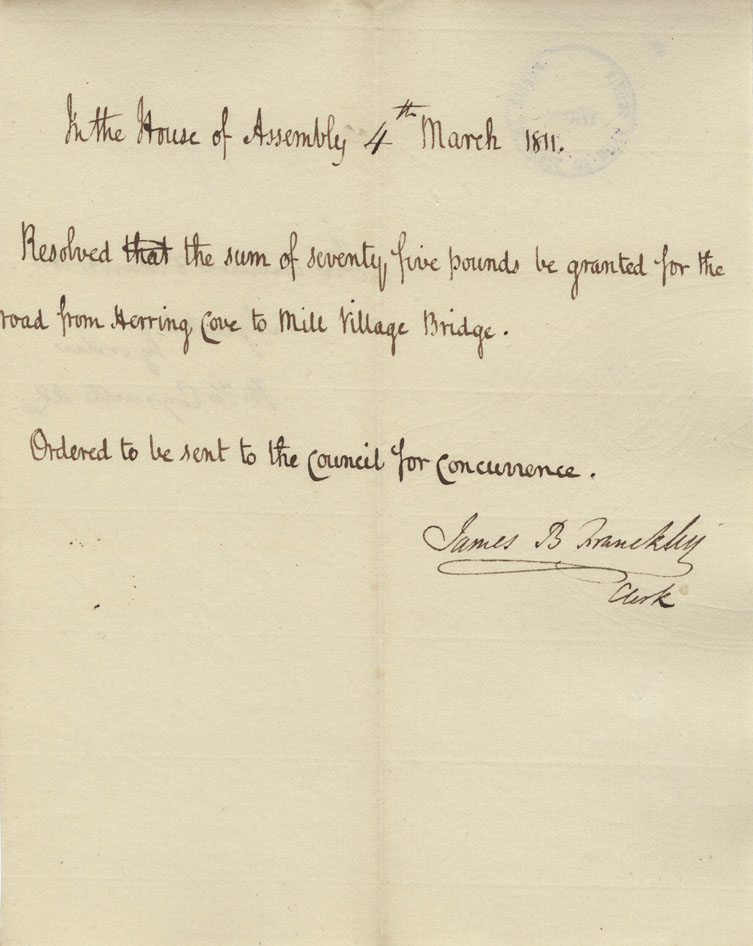 In the House of Assembly 4th March 1811.
Resolved that the sum of seventy five pounds be granted for the
road from Herring Cove to Mill Village Bridge.
Ordered to be sent to the Council for Concurrence.
James B Franckly
Clerk